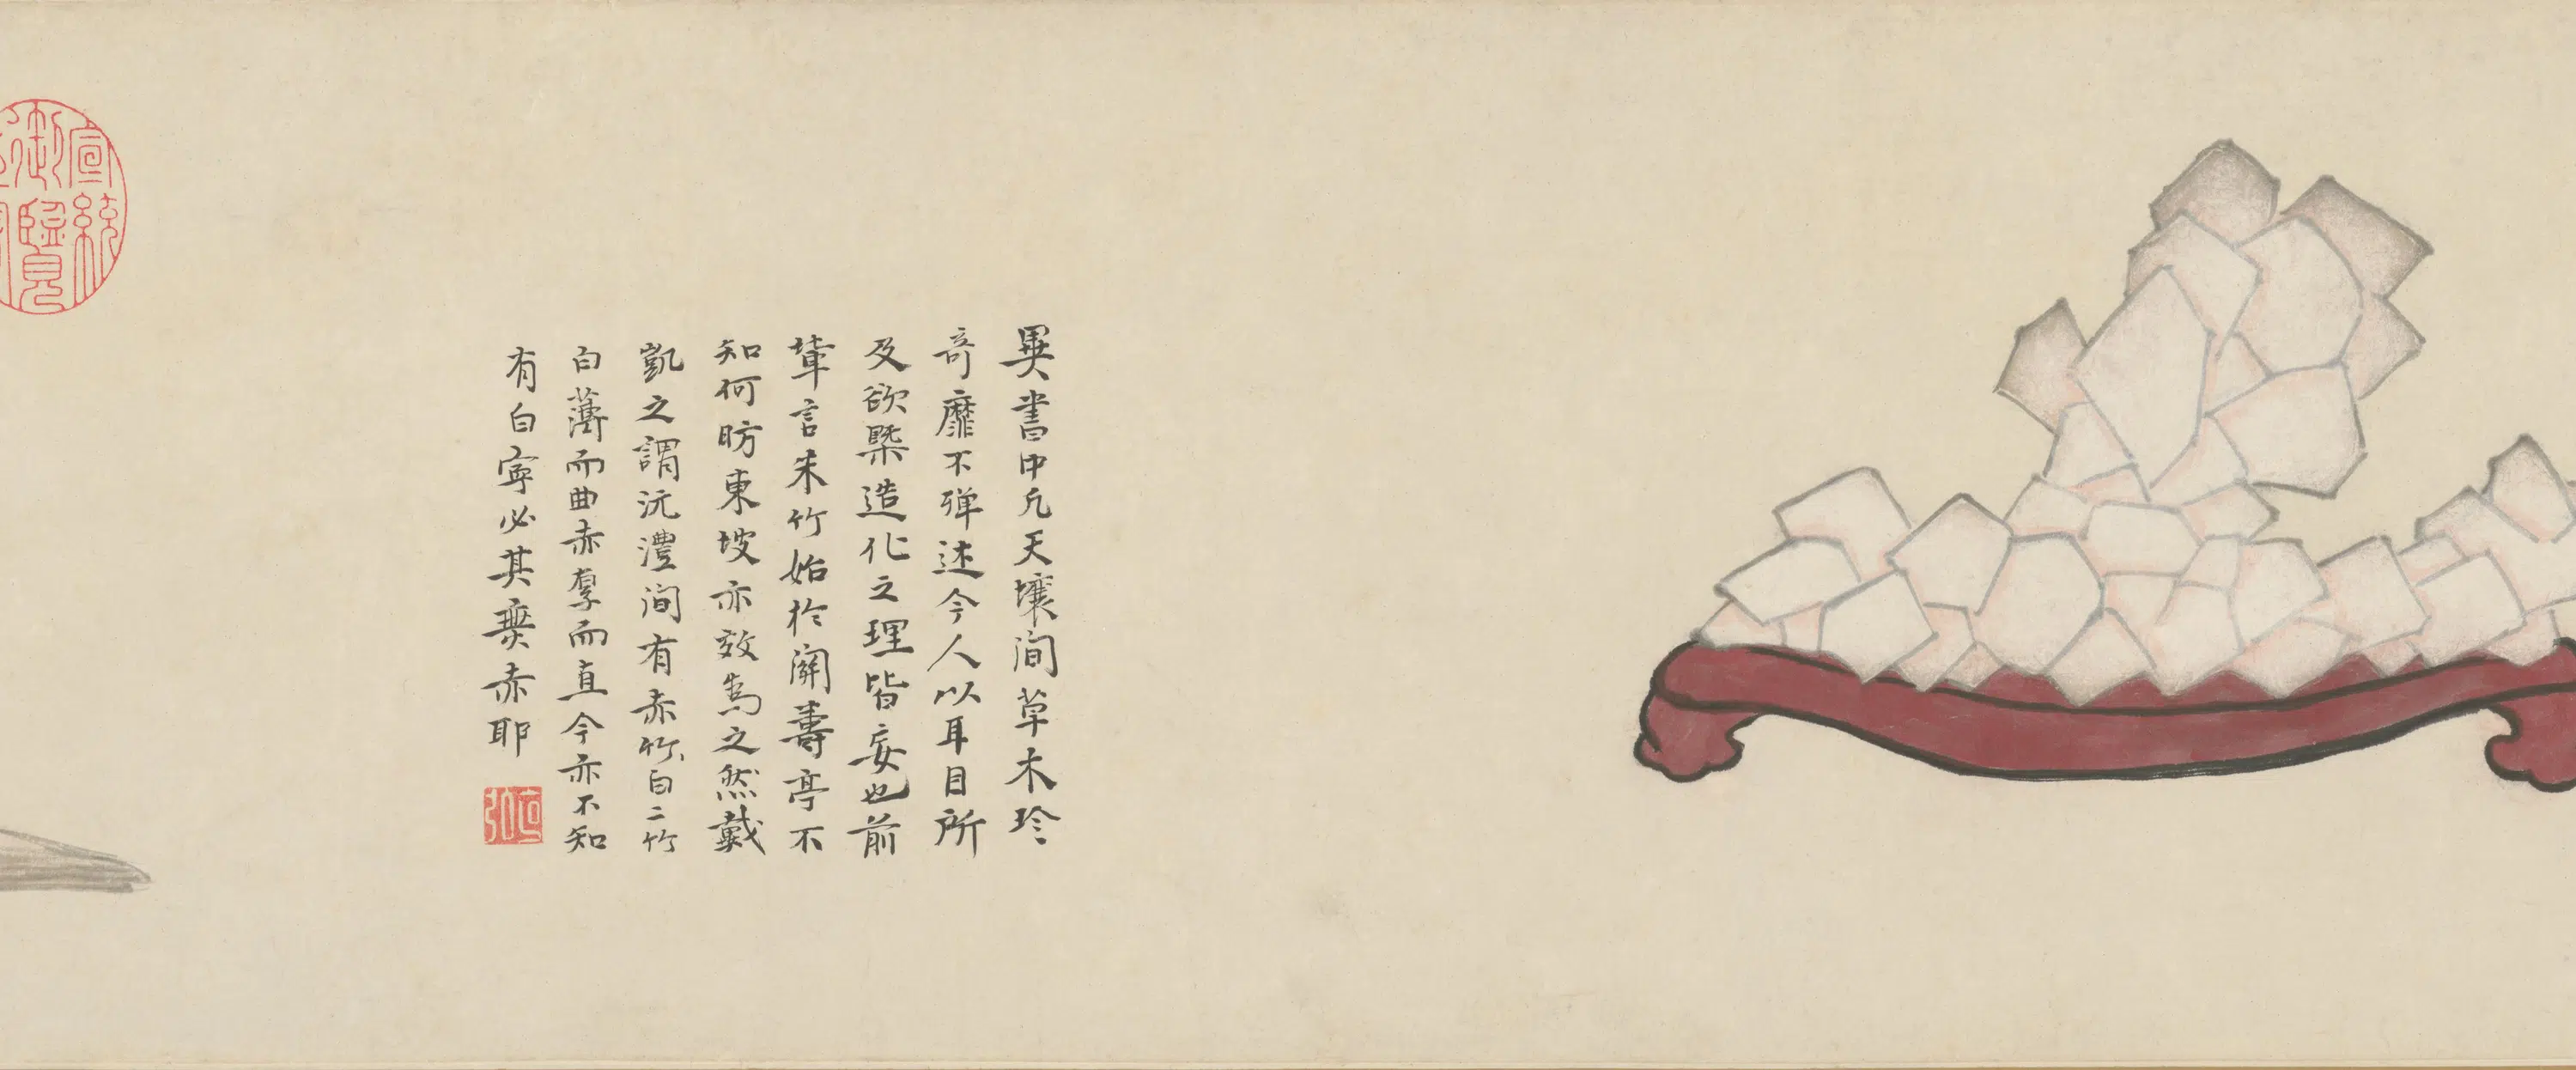 異書中凡天壤間草木珍
奇靡不殫述今人以耳目所
及欲槩造化之理皆妄也前
輩言朱竹始於關壽亭不
知何昉東坡亦效為之然戴
凱之謂沅澧間有赤竹白二竹
白薄而曲赤厚而直今亦不知
有白寧必其無赤耶
宣統
御覽